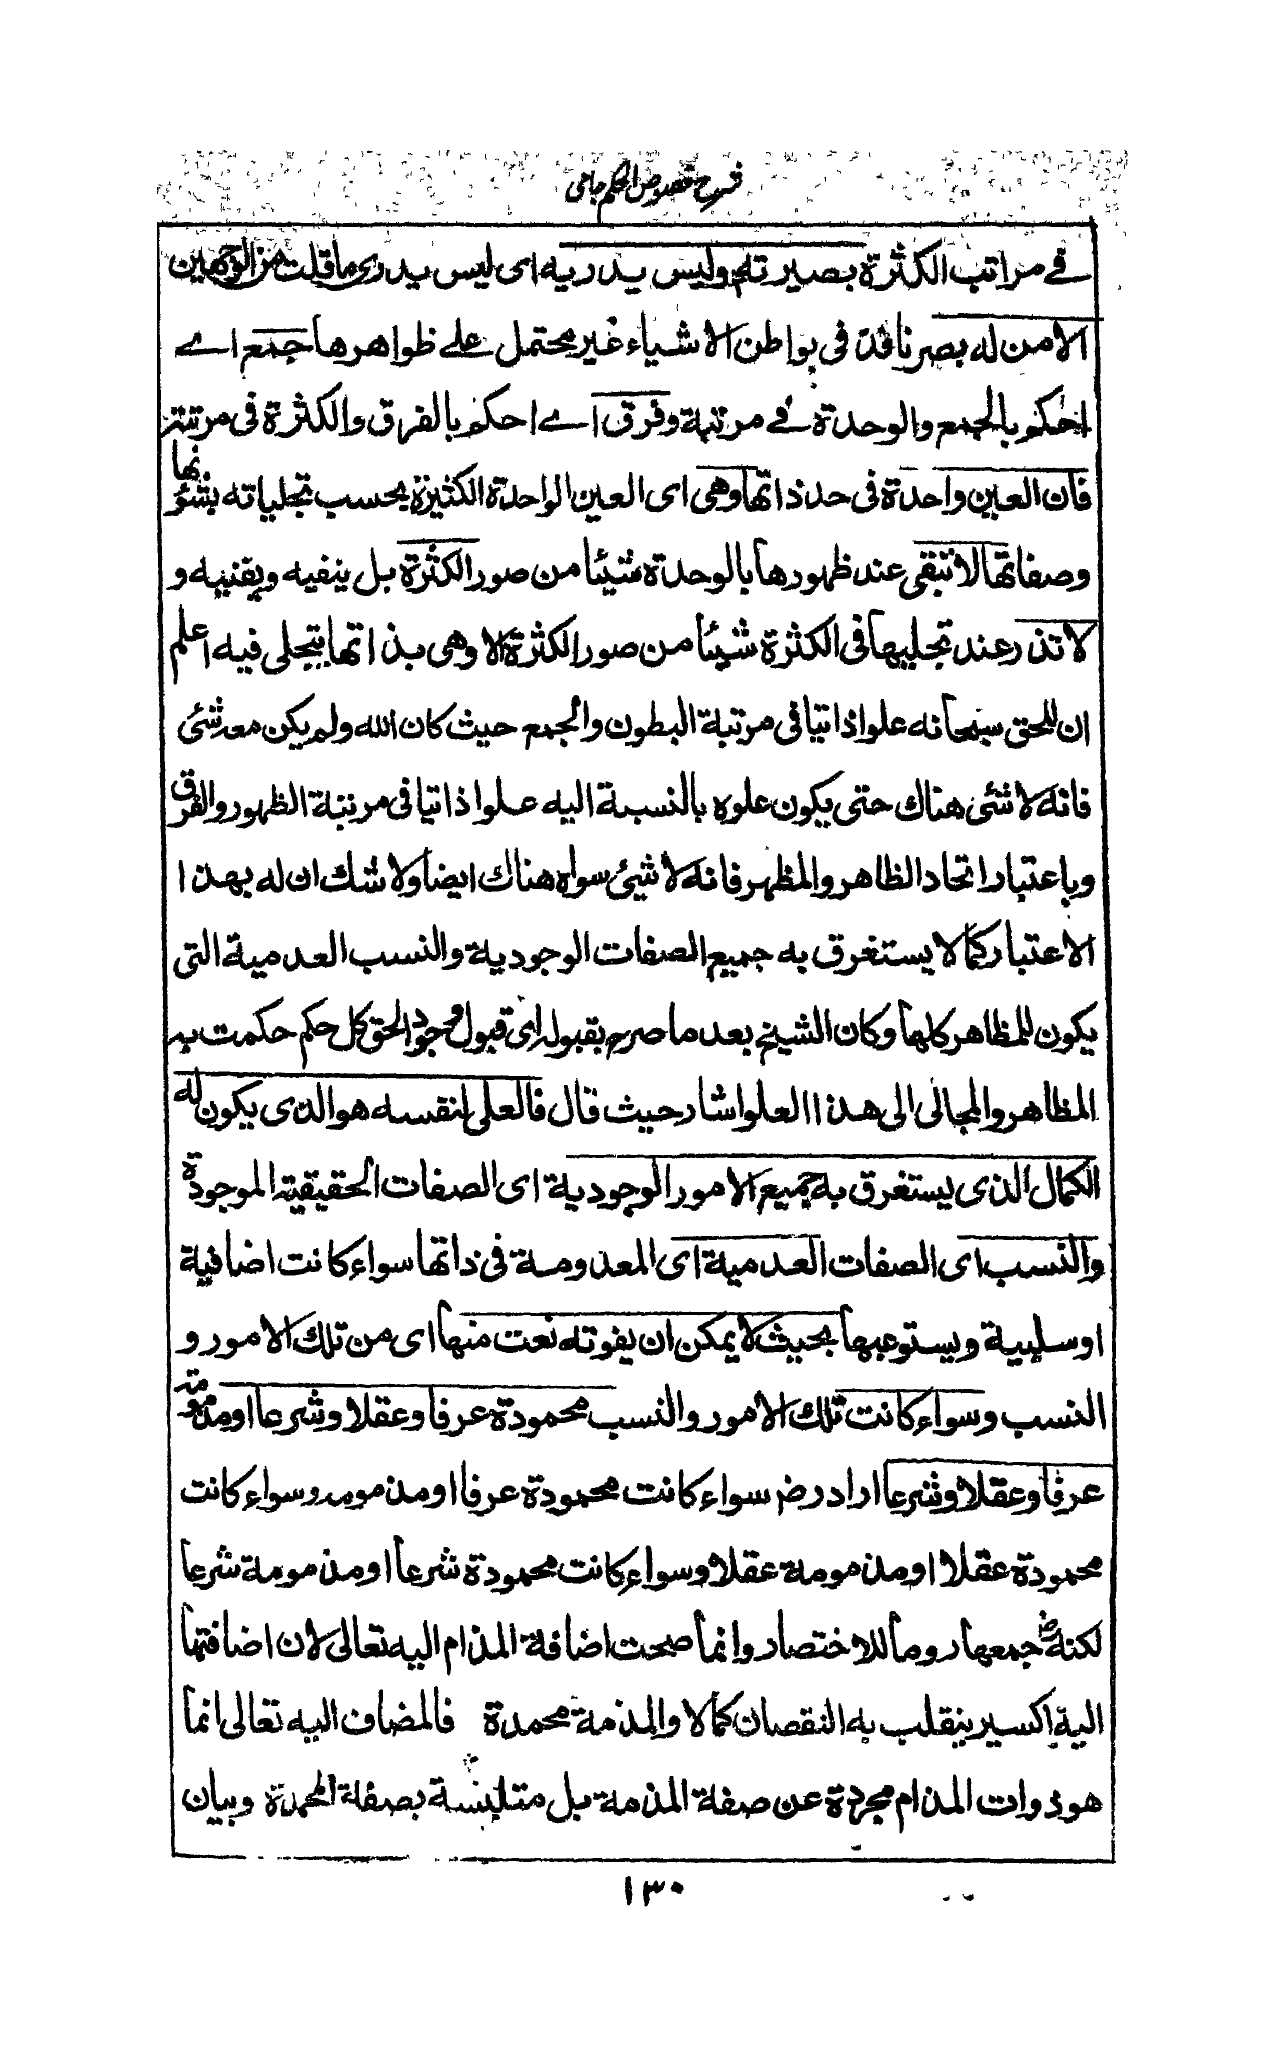 شرح فصوص الحكم جامى
فے مراتب الكثرة بصيرته وليس يدريه اى ليس يدرى ما قلت من الوجهين
الا من له بصر نافذ فى بواطن الاشياء غير محتمل علے ظواهرها جمع اے
احكم بالجمع والوحدة فے مرتبة وفرق اے احكم بالفرق والكثرة فى مرتبة
فان العين واحدة فى حد ذاتها وهى اى العين الواحدة الكثيرة بحسب تجلياته بشئونها
وصفاتها لا تبقى عند ظهورها بالوحدة شيئا من صور الكثرة بل ينفيه ويفنيه و
لا تذر عند تجليها فى الكثرة شيئا من صور الكثرة الا وهى بذاتها يتجلى فيه اعلم
ان للحق سبحانه علوا ذاتيا فى مرتبة البطون والجمع حيث كان الله ولم يكن معه شئى
فانه لا شئى هناك حتى يكون علوه بالنسبة اليه علوا ذاتيا فى مرتبة الظهور والفرق
وباعتبار اتحاد الظاهر والمظهر فانه لا شيئ سواه هناك ايضا ولا شك ان له بهذا
الاعتبار كمالا يستغرق به جميع الصفات الوجودية والنسب العدمية التى
يكون للمظاهر كلها وكان الشيخ بعد ما صرح بقبوله اى قبول وجود الحق كل حكم حكمت به
المظاهر والمجالى الى هذا العلو اشار حيث قال فالعلى لنفسه هو الذى يكون له
الكمال الذى يستغرق به جميع الامور الوجودية اى الصفات الحقيقية الموجودة
والنسب اى الصفات العدمية اى المعدومة فى ذاتها سواء كانت اضافية
او سلبية ويستوعبها بحيث لا يمكن ان يفوته نعت منها اى من تلك الامور و
النسب وسواء كانت تلك الامور والنسب محمودة عرفا وعقلا وشرعا او مذمومة
عرفا وعقلا وشرعا اراد رض سواء كانت محمودة عرفا او مذمومه وسواء كانت
محمودة عقلا او مذمومة عقلا وسواء كانت محمودة شرعا او مذمومة شرعا
لكنه رض جمعها روما للاختصار وانما صحت اضافة المذام اليه تعالى لان اضافتها
الية اكسير ينقلب به النقصان كمالا والمذمة محمدة فالمضاف اليه تعالى انما
هو ذوات المذام مجردة عن صفة المذمة بل متلبسة بصفة المحمدة وبيان
١٣٠